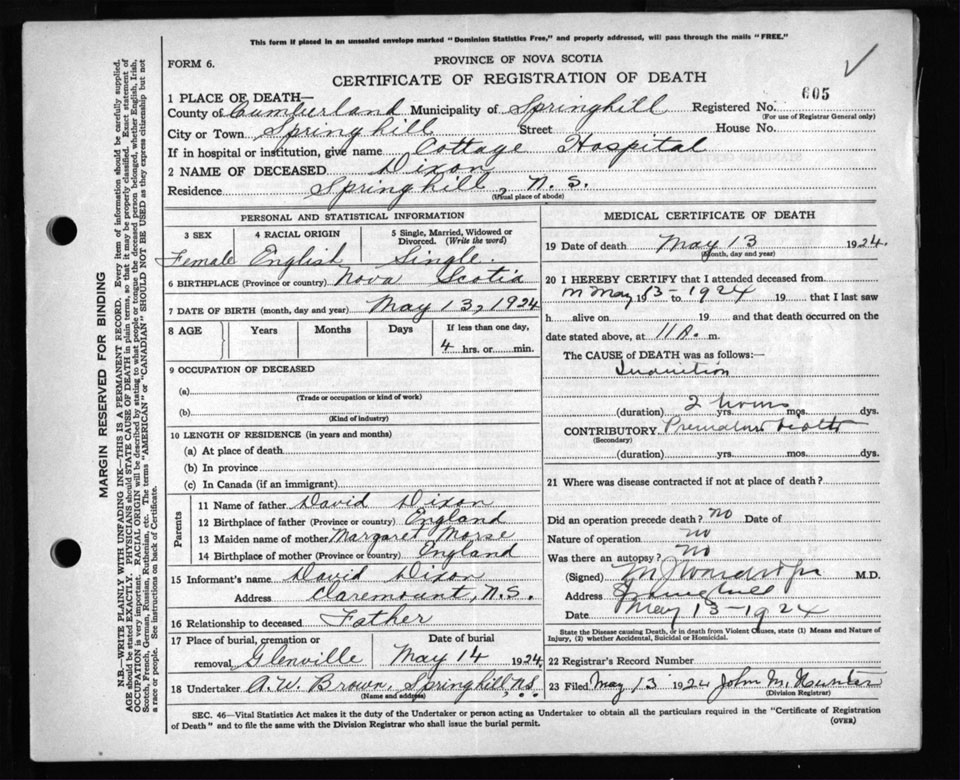 This form if placed in an unsealed envelope marked "Dominion Statistics Free," and properly addressed, will pass through the mails "FREE."
FORM 6.
PROVINCE OF NOVA SCOTIA
CERTIFICATE OF REGISTRATION OF DEATH
1 PLACE OF DEATH—
605
County of Cumberland Municipality of Springhill Registered No.
(For use of Registrar General only)
City or Town Springhill Street House No.
If in hospital or institution, give name Cottage Hospital
2 NAME OF DECEASED Dixon
Residence Springhill, N.S.
(Usual place of abode)
PERSONAL AND STATISTICAL INFORMATION
3 SEX 4 RACIAL ORIGIN 5 Single, Married, Widowed or Divorced. (Write the word)
Female English Single.
6 BIRTHPLACE (Province or country) Nova Scotia
7 DATE OF BIRTH (month, day and year) May 13, 1924
8 AGE Years Months Days If less than one day,
4 hrs. or min.
9 OCCUPATION OF DECEASED
(a)
(Trade or occupation or kind of work)
(b)
(Kind of industry)
10 LENGTH OF RESIDENCE (in years and months)
(a) At place of death
(b) In province
(c) In Canada (if an immigrant)
Parents
11 Name of father David Dixon
12 Birthplace of father (Province or country) England
13 Maiden name of mother Margaret Morse
14 Birthplace of mother (Province or country) England
15 Informant's name David Dixon
Address Claremount, N.S.
16 Relationship to deceased Father
17 Place of burial, cremation or removal, Glenville
Date of burial May 14 1924
18 Undertaker A. W. Brown, Springhill N.S.
(Name and address)
MEDICAL CERTIFICATE OF DEATH
19 Date of death May 13 1924.
(Month, day and year)
20 I HEREBY CERTIFY that I attended deceased from
May 13 19 to 1924 19 that I last saw
h alive on 19 and that death occurred on the
date stated above, at 11 A. m.
The CAUSE OF DEATH was as follows:—
2 hours
(duration) yrs. mos. dys.
CONTRIBUTORY Premature
(Secondary)
(duration) yrs. mos. dys.
21 Where was disease contracted if not at place of death?
Did an operation precede death? No Date of
Nature of operation no
Was there an autopsy? No
(Signed) M.D.
Address Springhill
Date May 13-1924
State the Disease causing Death, or in death from Violent Causes, state (1) Means and Nature of
Injury, (2) whether Accidental, Suicidal or Homicidal.
22 Registrar's Record Number
23 Filed May 13 1924 John M. Hunter
(Division Registrar)
SEC. 46—Vital Statistics Act makes it the duty of the Undertaker or person acting as Undertaker to obtain all the particulars required in the "Certificate of Registration
of Death" and to file the same with the Division Registrar who shall issue the burial permit.
(OVER)
MARGIN RESERVED FOR BINDING
N.B.—WRITE PLAINLY WITH UNFADING INK—THIS IS A PERMANENT RECORD. Every item of information should be carefully supplied.
AGE should be stated EXACTLY. PHYSICIANS should STATE CAUSE OF DEATH in plain terms, so that it may be properly classified. Exact statement of
OCCUPATION is very important. RACIAL ORIGIN will be described by stating to what people or tongue the deceased person belonged, whether English, Irish,
Scotch, French, German, Russian, Ruthenian, etc. The terms "AMERICAN" or "CANADIAN" SHOULD NOT BE USED as they express citizenship but not
a race or people. See instructions on back of Certificate.